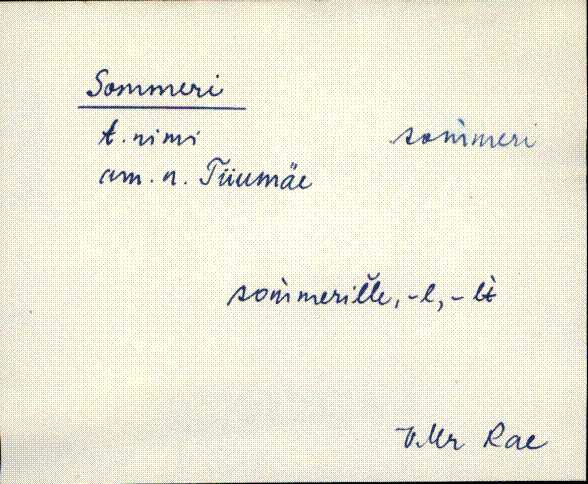 Sommeri
t. nimi som̀meri
am. n. Tüümäe
som̀merille, -l, -lt
V.Mr Rae